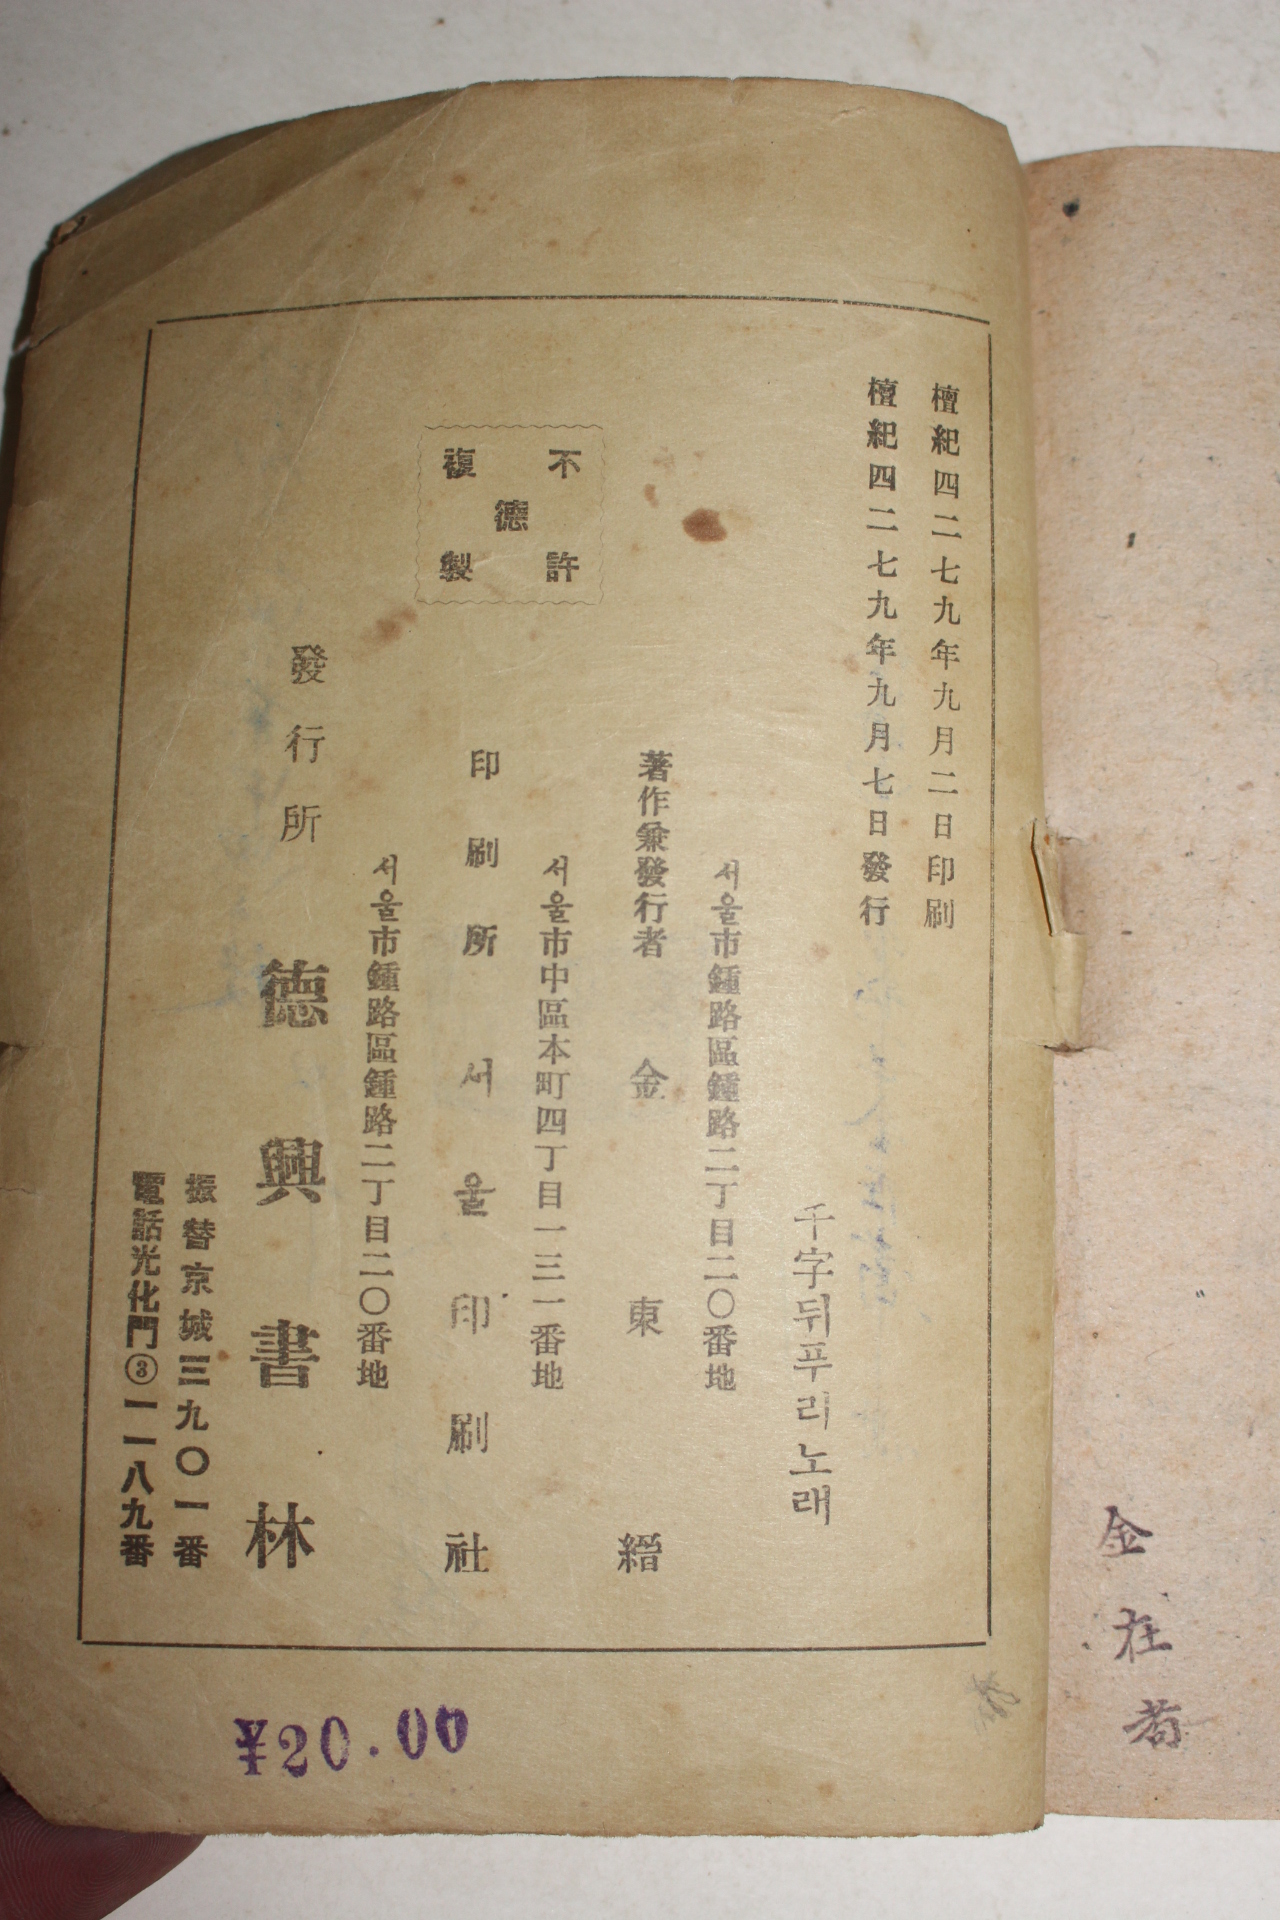 檀紀四二七九年九月二日印刷
檀紀四二七九年九月七日發行
千字뒤푸리노래
不許
德
複製
서울市鍾路區鍾路二丁目二〇番地
著作兼發行者 金東縉
서울市中區本町四丁目一三一番地
印刷所 서울印刷社
서울市鍾路區鍾路二丁目二〇番地
發行所 德興書林
振替京城三九〇一番
電話光化門③一一八九番
¥20.00
金在